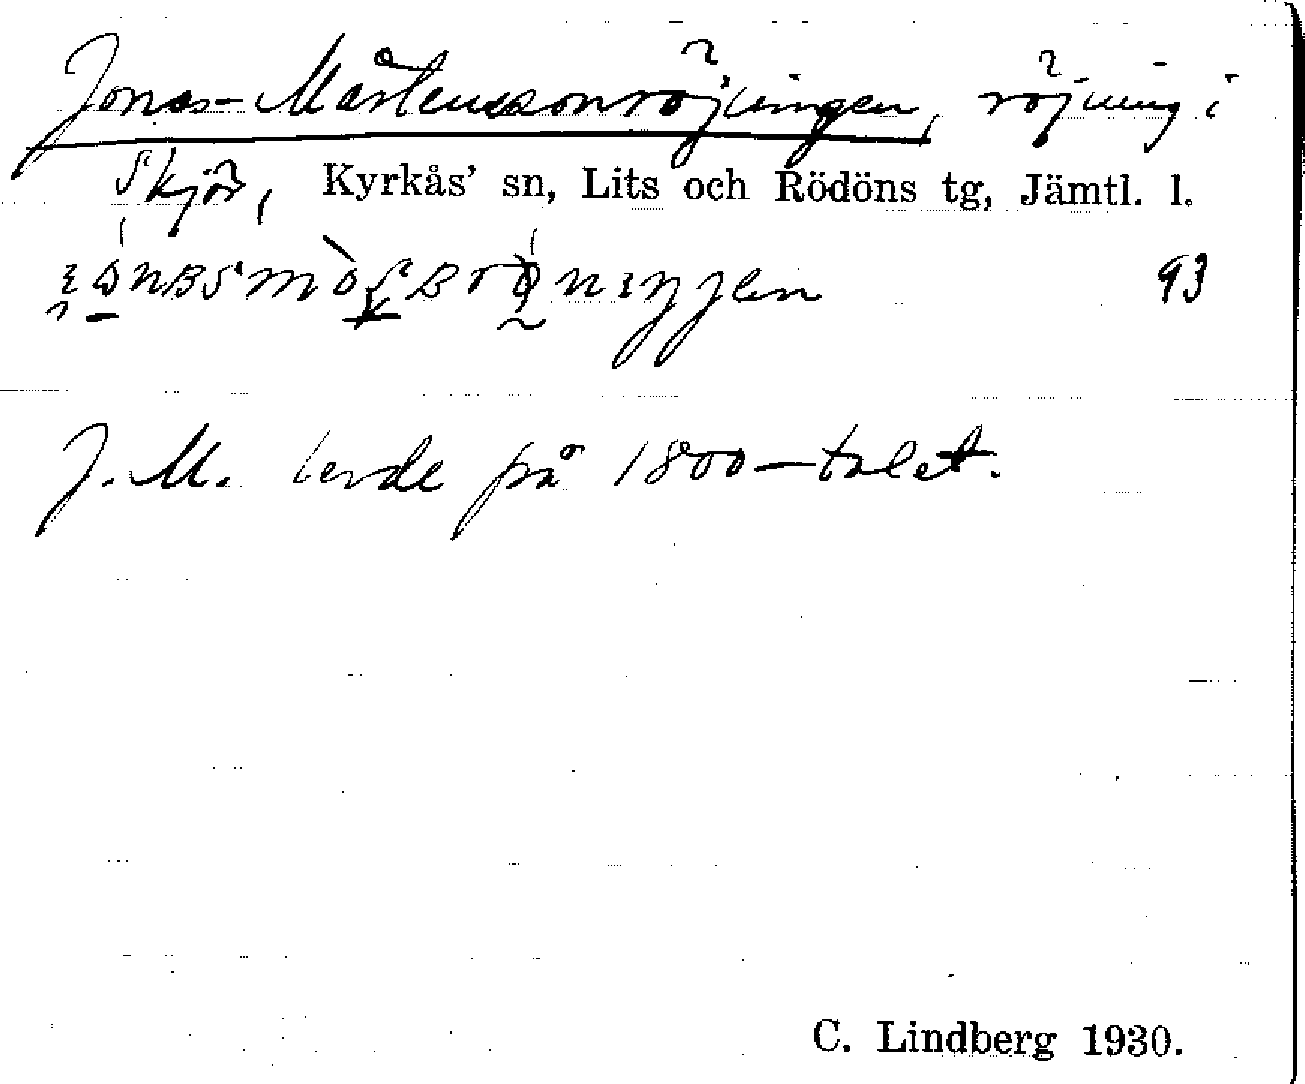 Jonas-Mårtenssonröjningen, röjning i
Skjör, Kyrkås' sn, Lits och Rödöns tg, Jämtl. l.
93
J. M. levde på 1800-talet.
C. Lindberg 1930.